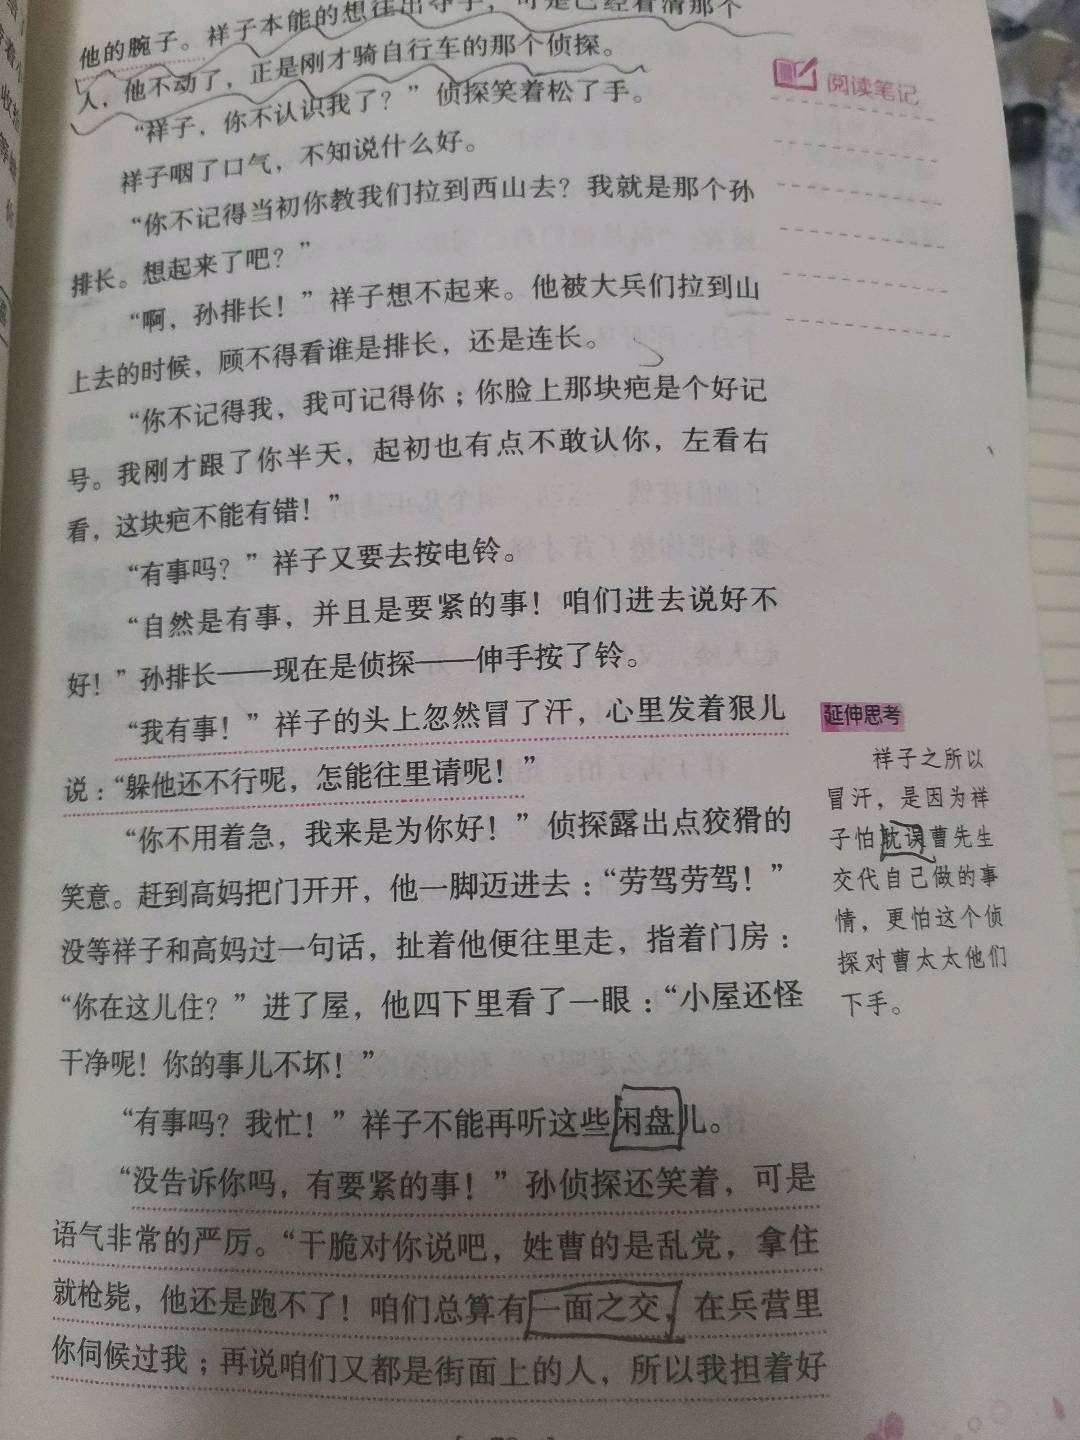 他的腕子。祥子本能的想往出夺手，可是已经看清那个
人，他不动了，正是刚才骑自行车的那个侦探。
“祥子，你不认识我了？”侦探笑着松了手。
祥子咽了口气，不知说什么好。
“你不记得当初你教我们拉到西山去？我就是那个孙
排长。想起来了吧？”
“啊，孙排长！”祥子想不起来。他被大兵们拉到山
上去的时候，顾不得看谁是排长，还是连长。
“你不记得我，我可记得你；你脸上那块疤是个好记
号。我刚才跟了你半天，起初也有点不敢认你，左看右
看，这块疤不能有错！”
“有事吗？”祥子又要去按电铃。
“自然是有事，并且是要紧的事！咱们进去说好不
好！”孙排长——现在是侦探——伸手按了铃。
“我有事！”祥子的头上忽然冒了汗，心里发着狠儿
说：“躲他还不行呢，怎能往里请呢！”
“你不用着急，我来是为你好！”侦探露出点狡猾的
笑意。赶到高妈把门开开，他一脚迈进去：“劳驾劳驾！”
没等祥子和高妈过一句话，扯着他便往里走，指着门房：
“你在这儿住？”进了屋，他四下里看了一眼：“小屋还怪
干净呢！你的事儿不坏！”
“有事吗？我忙！”祥子不能再听这些闲盘儿。
“没告诉你吗，有要紧的事！”孙侦探还笑着，可是
语气非常的严厉。“干脆对你说吧，姓曹的是乱党，拿住
就枪毙，他还是跑不了！咱们总算有一面之交，在兵营里
你伺候过我；再说咱们又都是街面上的人，所以我担着好
阅读笔记
延伸思考
祥子之所以
冒汗，是因为祥
子怕耽误曹先生
交代自己做的事
情，更怕这个侦
探对曹太太他们
下手。